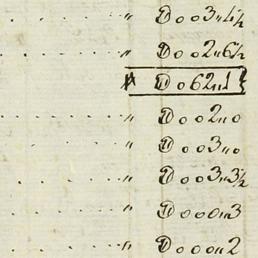 " D o o 3 " 4 ½
" D o o 2 " 6 ½
D o 6 2 " 1
" D o o 2 " 0
" D o o 3 " 0
" D o o 3 " 3 ½
" D o o 0 " 3
" D o o 0 " 2